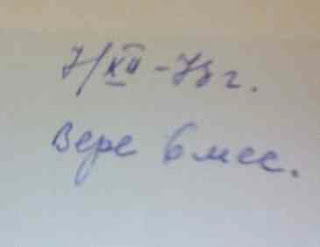 7/XII-73г.
Вере 6 мес.